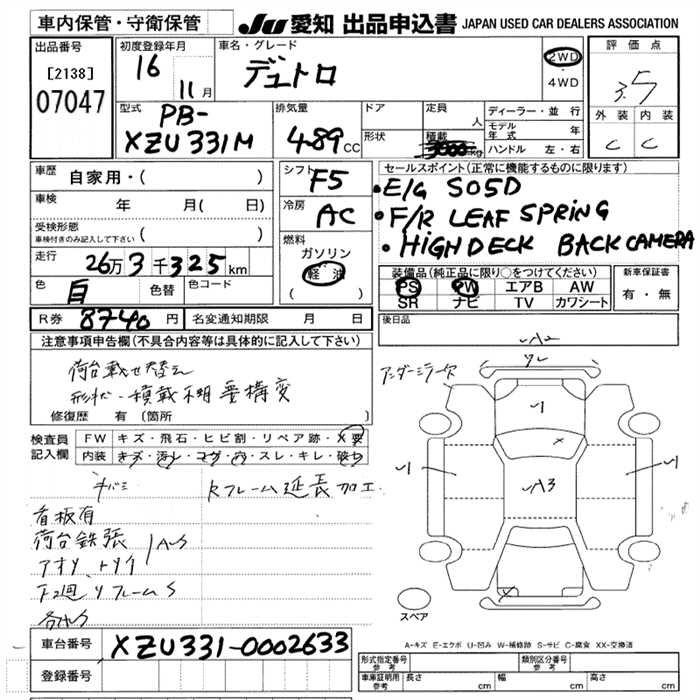 車内保管・守衛保管
JU 愛知 出品申込書 JAPAN USED CAR DEALERS ASSOCIATION
出品番号
[2138]
07047
初度登録年月
16 年 11 月
車名・グレード
デュトロ
2WD
・
4WD
評価点
3.5
外装 内装
C C
型式
PB-
XZU331M
排気量
4.89 CC
ドア
形状
定員
人
積載
3000 kg
ディーラー・並行
モデル年式 年
ハンドル 左・右
車歴
自家用・( )
車検
年 月( 日)
受検形態
車検付きのみ記入して下さい ( )
走行
26万3千325km
色
白
色替
色コード
シフト
F5
冷房
AC
燃料
ガソリン
軽油
( )
セールスポイント(正常に機能するものに限ります)
・E/G S05D
・F/R LEAF SPRING
・HIGHDECK BACK CAMERA
装備品(純正品に限り○をつけてください)
PS PW エアB AW
SR ナビ TV カワシート
新車保証書
有・無
R券 8740 円
名変通知期限 月 日
後日品
注意事項申告欄(不具合内容等は具体的に記入して下さい)
荷台載せ替え
形状・積載不明 要構変
修復歴 有(箇所 )
検査員
記入欄
FW キズ・飛石・ヒビ割・リペア跡・X要
内装 キズ・汚レ・コゲ・穴・スレ・キレ・破レ
Rフレーム延長加工
看板有
荷台鉄張
下廻リフレームS
アンダーミラーX
A3
スペア
A-キズ E-エクボ U-凹み W-補修跡 S-サビ C-腐食 XX-交換済
車台番号
XZU331-0002633
登録番号
形式指定番号
参考
類別区分番号
参考
車庫証明用
参考
長さ cm 幅 cm 高さ cm